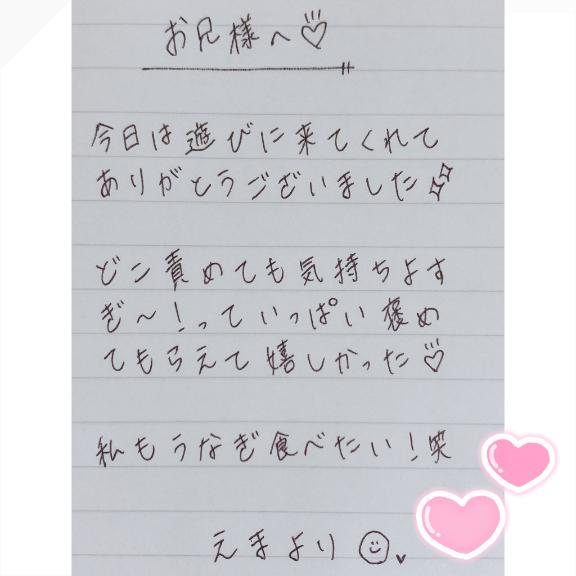 お兄様へ♡
今日は遊びに来てくれて
ありがとうございました
どこ責めても気持ちよす
ぎ〜!っていっぱい褒め
てもらえて嬉しかった♡
私もうなぎ食べたい!笑
えまより